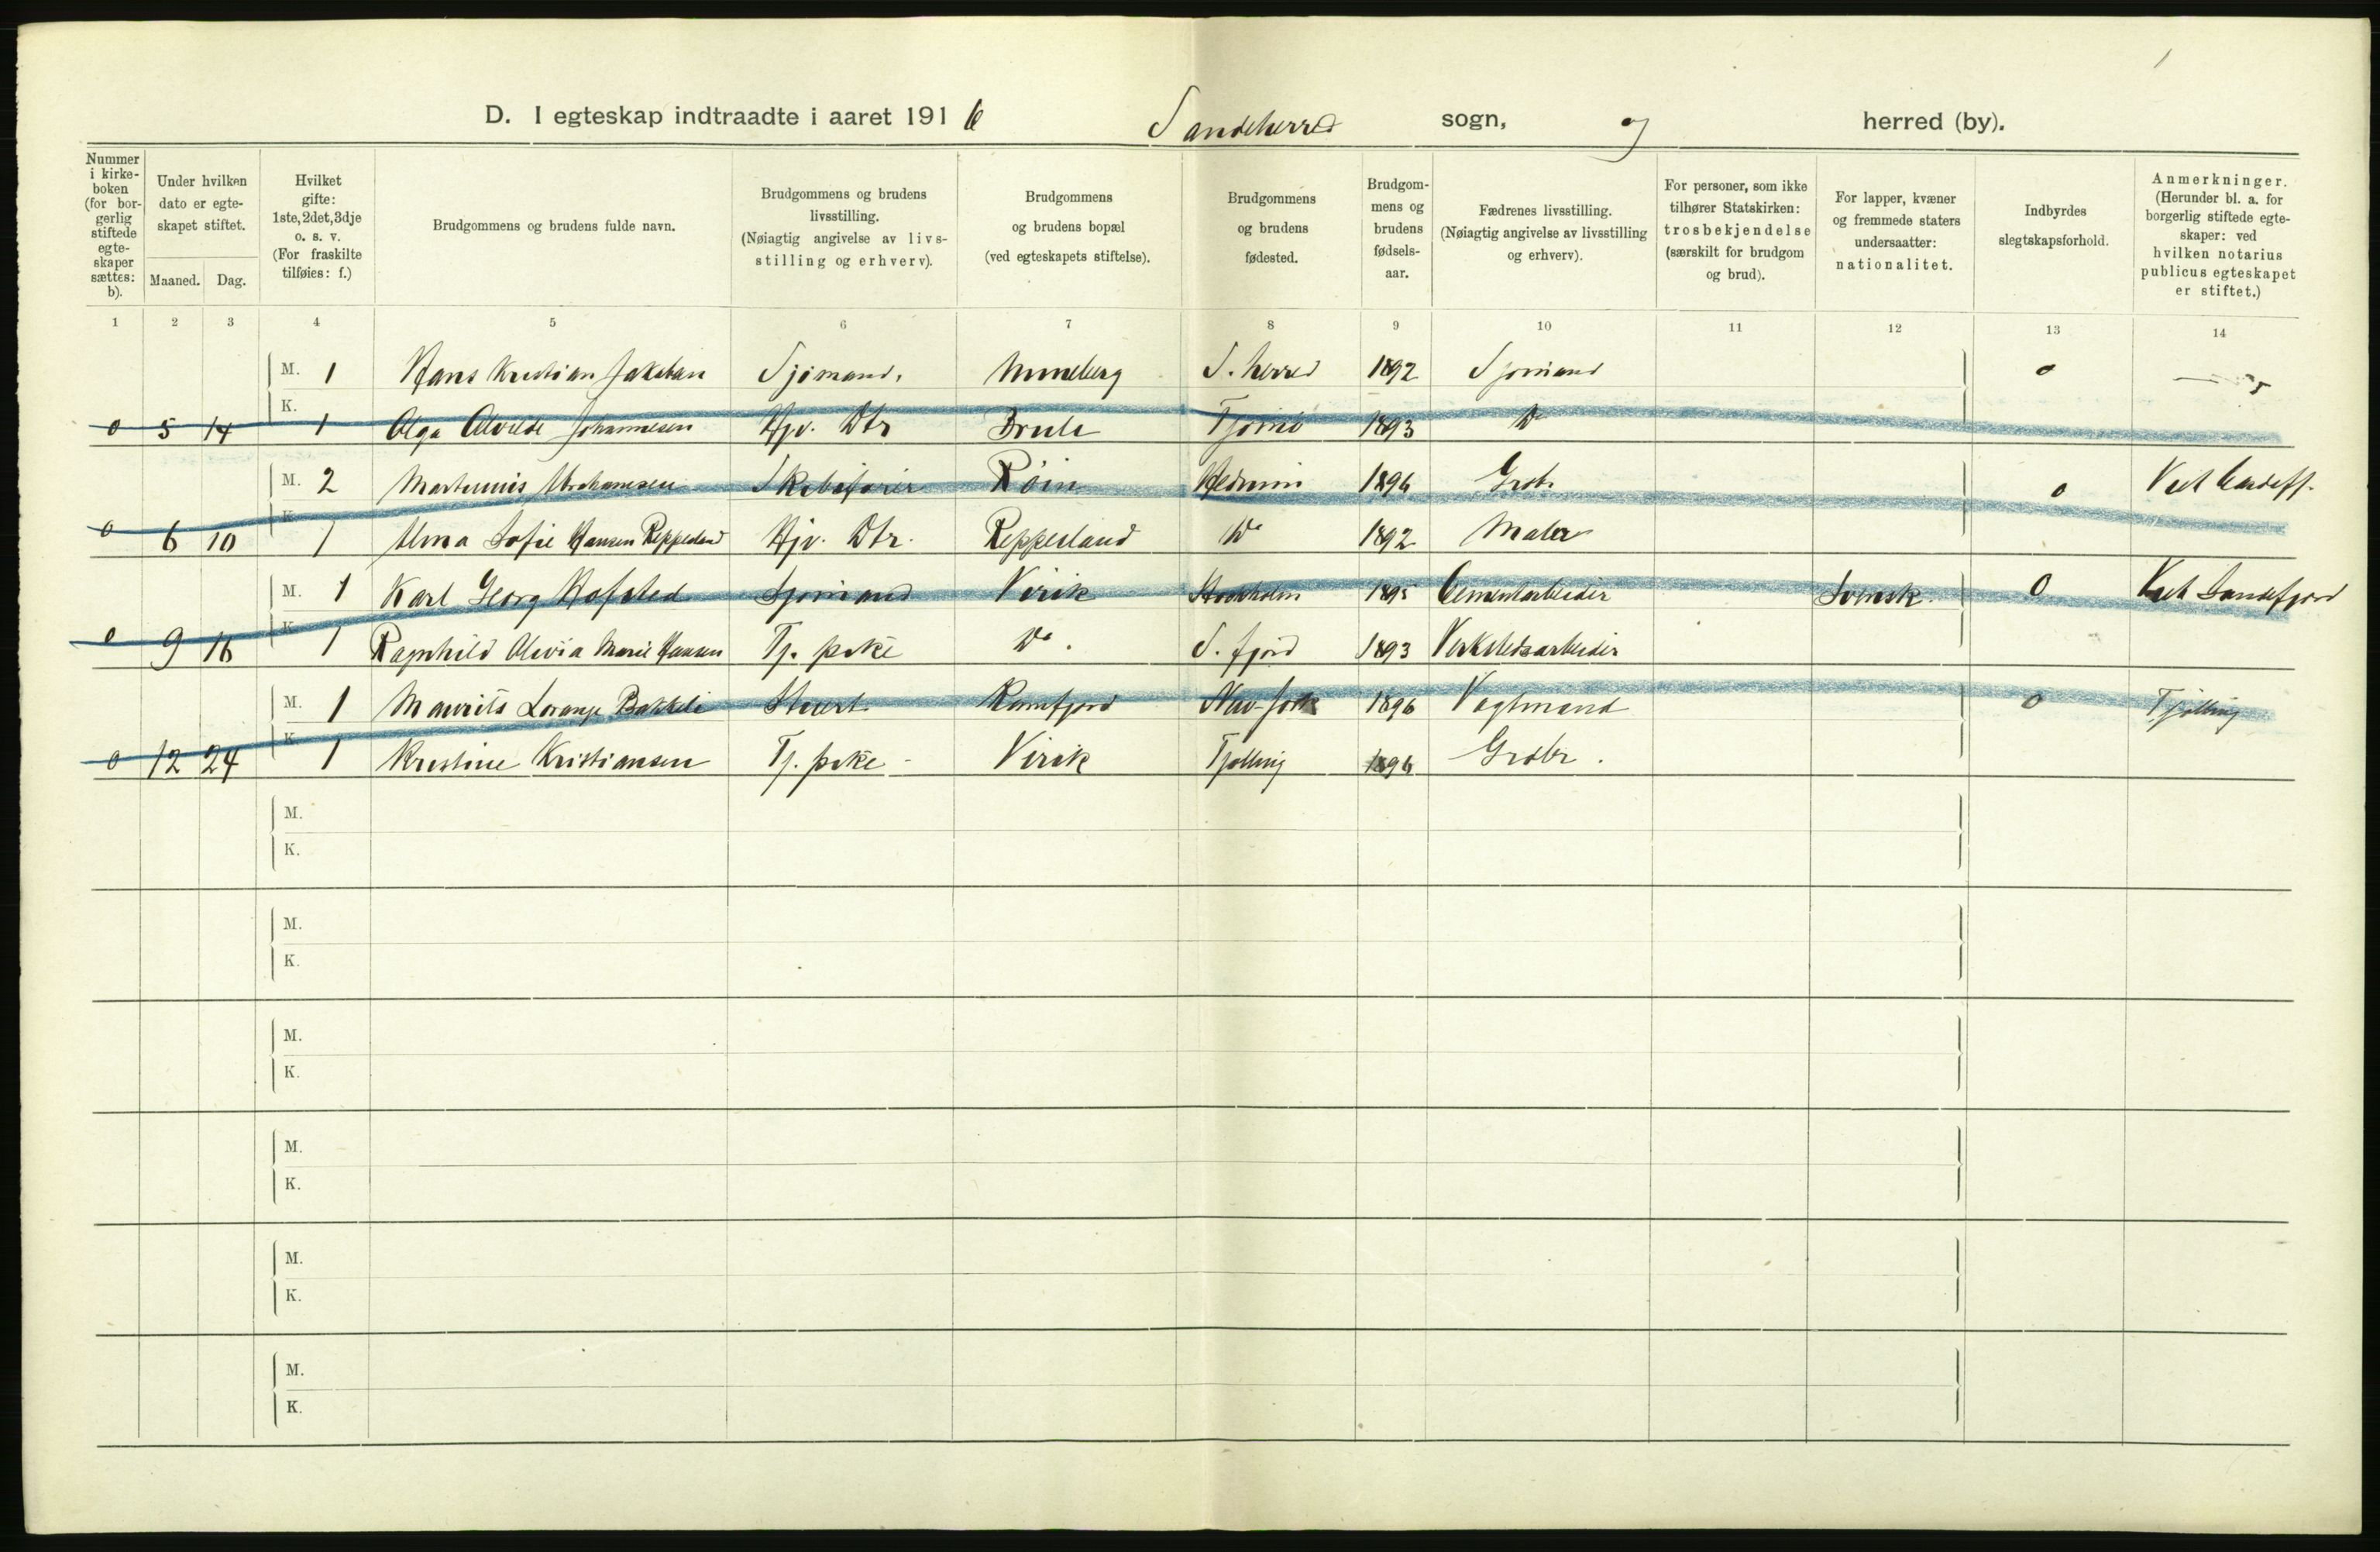 D. I egteskap indtraadte i aaret 1916 Sandeherred sogn, og herred (by).
Nummer i kirkeboken (for borgerlig stiftede egteskaper sættes: b).
Under hvilken dato er egteskapet stiftet.
Maaned. Dag.
Hvilket gifte: 1ste, 2det, 3dje o. s. v. (For fraskilte tilføies: f.)
Brudgommens og brudens fulde navn.
Brudgommens og brudens livsstilling. (Nøiagtig angivelse av livsstilling og erhverv).
Brudgommens og brudens bopæl (ved egteskapets stiftelse).
Brudgommens og brudens fødested.
Brudgommens og brudens fødselsaar.
Fædrenes livsstilling. (Nøiagtig angivelse av livsstilling og erhverv).
For personer, som ikke tilhører Statskirken: trosbekjendelse (særskilt for brudgom og brud).
For lapper, kvæner og fremmede staters undersaatter: nationalitet.
Indbyrdes slegtskapsforhold.
Anmerkninger. (Herunder bl. a. for borgerlig stiftede egteskaper: ved hvilken notarius publicus egteskapet er stiftet.)
1 2 3 4 5 6 7 8 9 10 11 12 13 14
M. 1 Hans Kristian Jakobsen Sjømand. Unneberg S. herred 1892 Sjømand 0
0 5 14 K. 1 Olga Alvilde Johannesen Hjv. Dtr Tjømø 1893 Do
M. 2 Abrahamsen Skibsfører Røin Hedrum 1896 Grdbr. 0
0 6 10 K. 1 Alma Sofie Hansen Reppesland Hjv. Dtr. Reppesland Do 1892 Maler
M. 1 Karl Georg Hofsted Sjømand Virik Stockholm 1895 Cementarbeider Svensk. 0 Sandefjord
0 9 16 K. 1 Ragnhild Alvia Marie Hansen Tj. pike Do. S. fjord 1893 Verkstedsarbeider
M. 1 Maurits Lorange Bakkeli Stuert. 1896 Vagtmand 0 Tjølling
0 12 24 K. 1 Kristine Kristiansen Tj. pike - Virik Tjølling 1896 Grdbr.
M.
K.
M.
K.
M.
K.
M.
K.
M.
K.
M.
K.